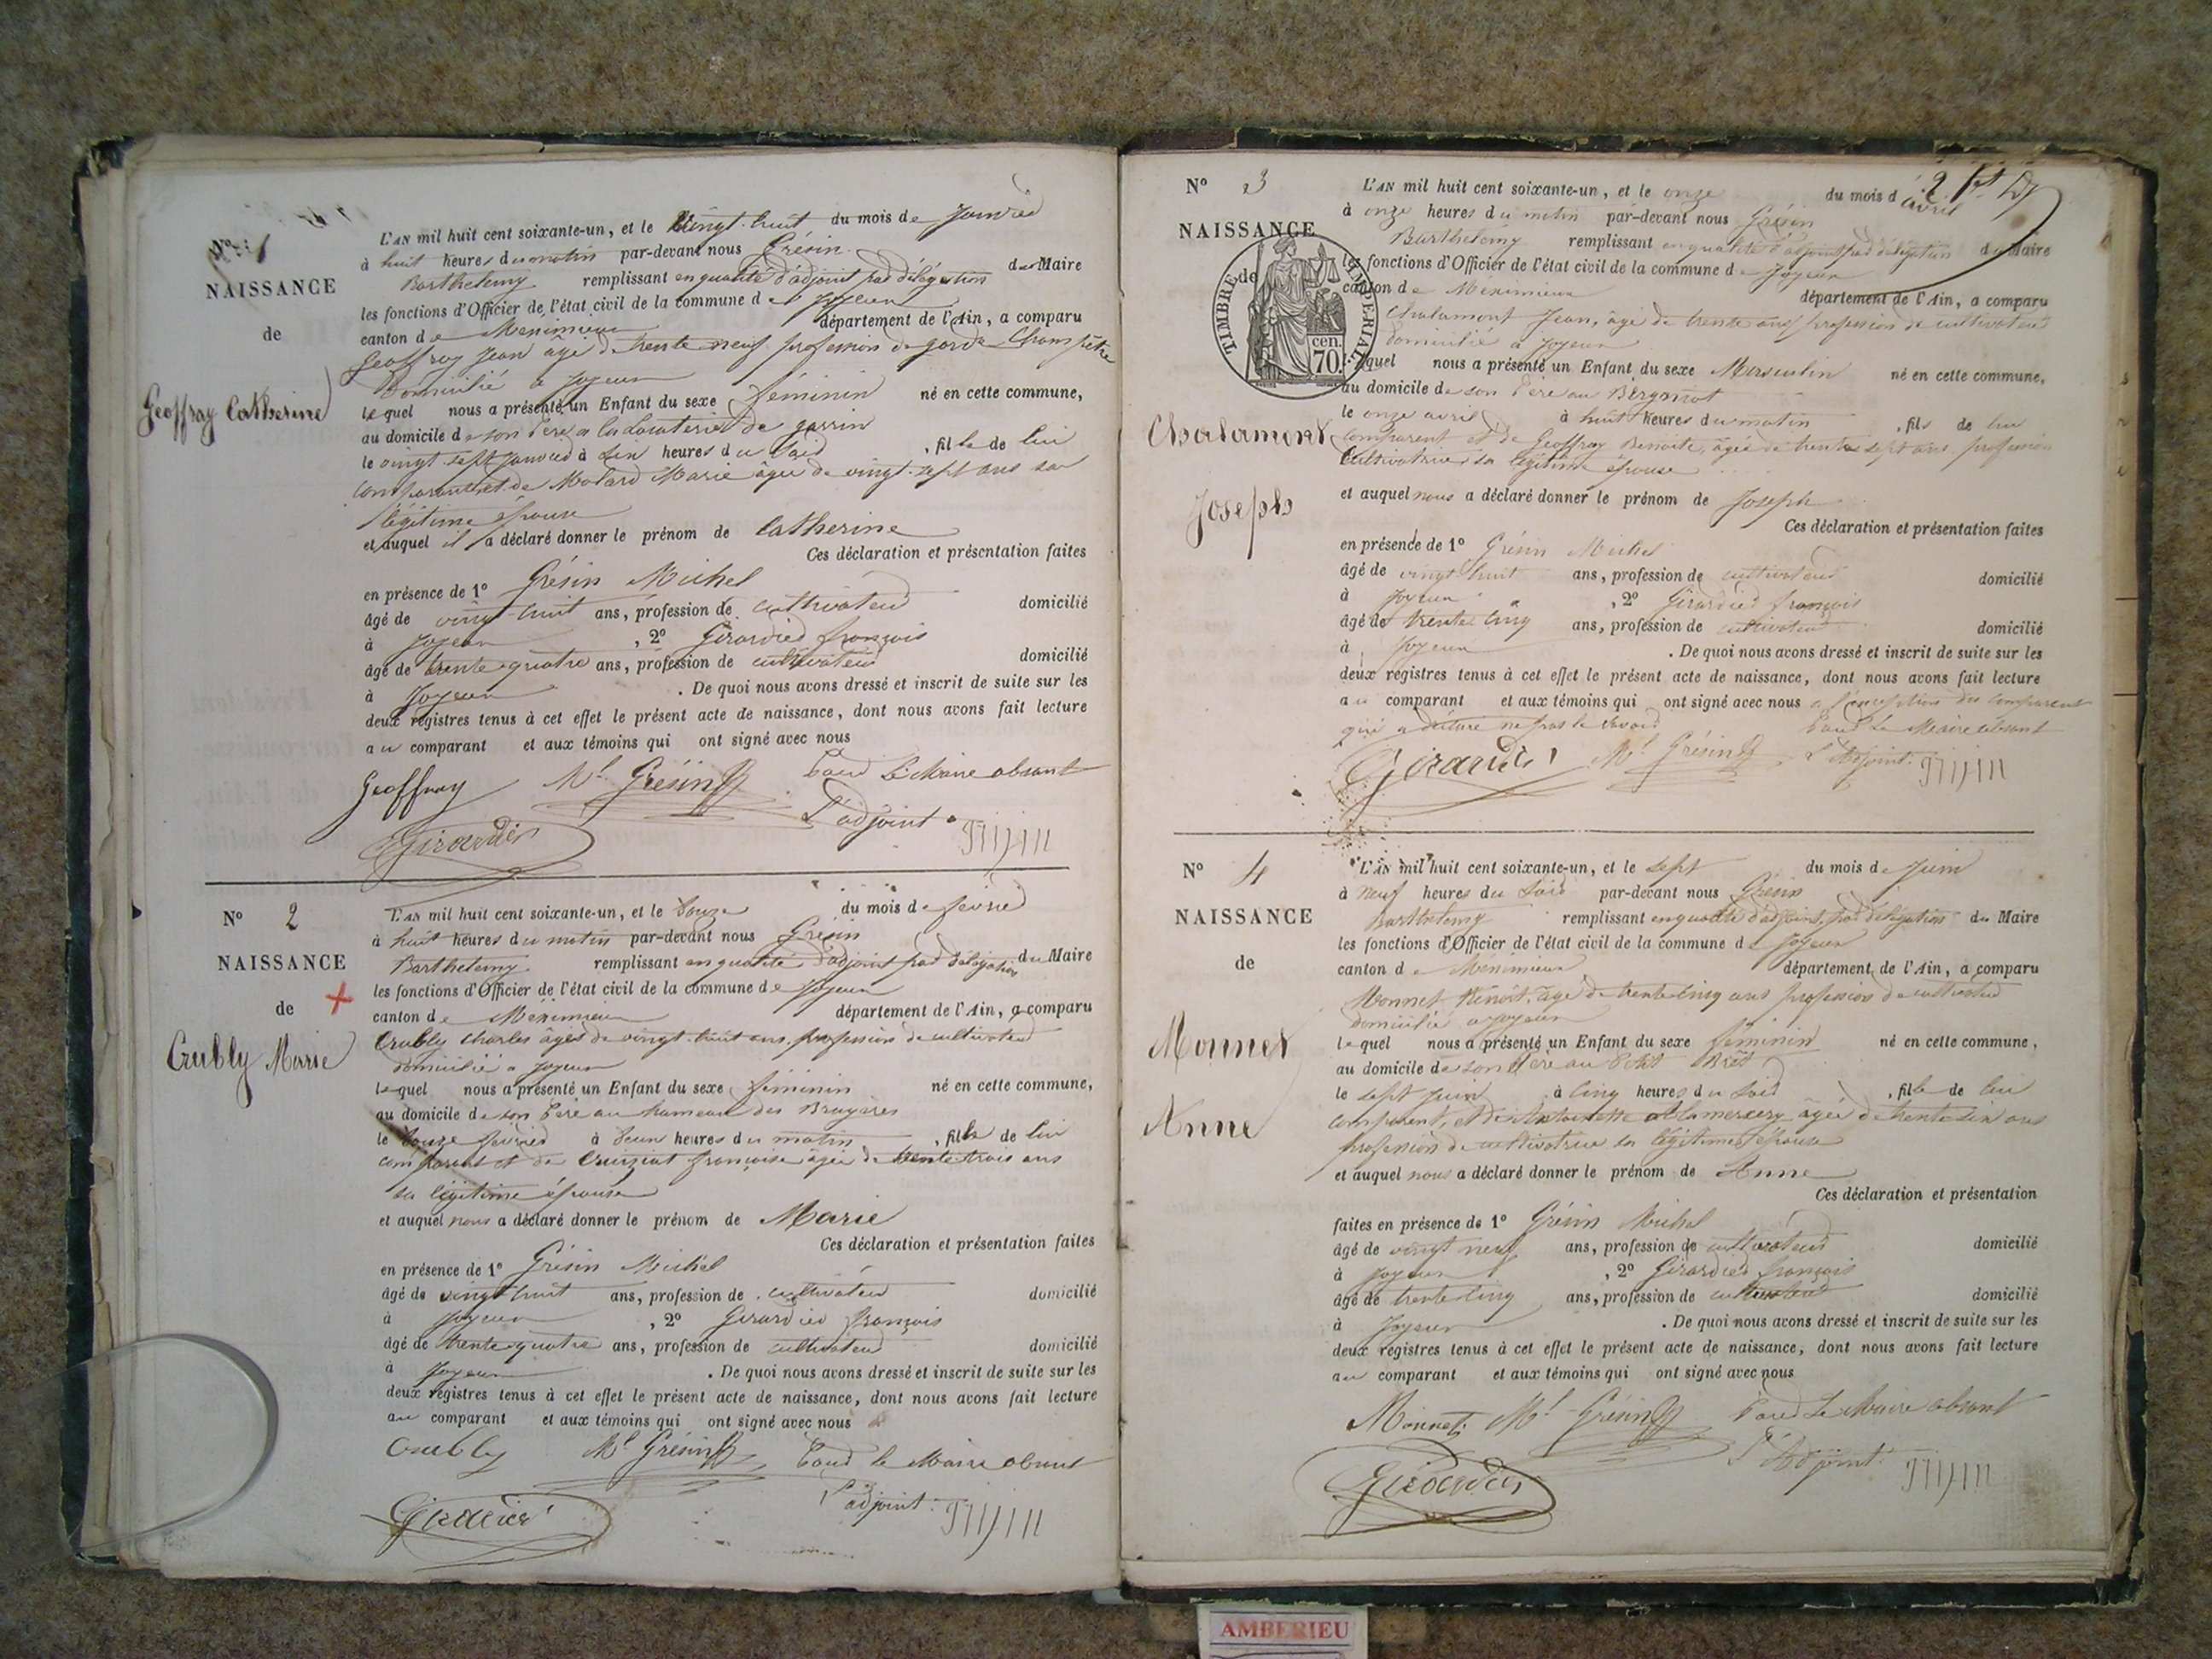 Nº 1
NAISSANCE
de
Geoffray Catherine
L'AN mil huit cent soixante-un, et le vingt-huit du mois de Janvier
à huit heures du matin par-devant nous Grésin
Barthelemy remplissant en qualité d'adjoint par délégation du Maire
les fonctions d'Officier de l'état civil de la commune de Joyeux
canton de Meximieux département de l'Ain, a comparu
Geoffray Jean âgé de trente neuf profession de garde Champêtre
domicilié a Joyeux
lequel nous a présenté un Enfant du sexe féminin né en cette commune,
au domicile de son Père a la Locaterie de
le vingt sept Janvier à heures du Soir, fille de lui
comparant et de Molard Marie âgée de vingt-sept ans sa
légitime épouse
et auquel il a déclaré donner le prénom de Catherine
Ces déclaration et présentation faites
en présence de 1º Grésin Michel
âgé de vingt-huit ans, profession de cultivateur domicilié
à Joyeux, 2º Girardier françois
âgé de trente-quatre ans, profession de cultivateur domicilié
à Joyeux. De quoi nous avons dressé et inscrit de suite sur les
deux registres tenus à cet effet le présent acte de naissance, dont nous avons fait lecture
au comparant et aux témoins qui ont signé avec nous
Geoffray Ml Grésin Pour Le Maire absant
Girardier L'adjoint
Nº 2
NAISSANCE
de
Crubly Marie
L'AN mil huit cent soixante-un, et le douze du mois de février
à huit heures du matin par-devant nous Grésin
Barthelemy remplissant en qualité d'adjoint par délégation du Maire
les fonctions d'Officier de l'état civil de la commune de Joyeux
canton de Méximieux département de l'Ain, a comparu
Crubly Charles âgés de vingt-huit ans, profession de cultivateur
domicilié a Joyeux
lequel nous a présenté un Enfant du sexe féminin né en cette commune,
au domicile de son Père au hameau des Bruyères
le douze février à deux heures du matin, fille de lui
comparant et de Cruiziat françoise âgée de trente trois ans
sa légitime épouse
et auquel nous a déclaré donner le prénom de Marie
Ces déclaration et présentation faites
en présence de 1º Grésin Michel
âgé de vingt huit ans, profession de cultivateur domicilié
à Joyeux, 2º Girardier françois
âgé de trente-quatre ans, profession de cultivateur domicilié
à Joyeux. De quoi nous avons dressé et inscrit de suite sur les
deux registres tenus à cet effet le présent acte de naissance, dont nous avons fait lecture
au comparant et aux témoins qui ont signé avec nous
Crubly Ml Grésin Pour le Maire absant
Girardier L'adjoint
Nº 3
NAISSANCE
de
TIMBRE IMPERIAL
cen.
70.
Chalamont
Joseph
L'AN mil huit cent soixante-un, et le onze du mois d'avril
à onze heures du matin par-devant nous Grésin
Barthelémy remplissant en qualité d'adjoint par délégation du Maire
les fonctions d'Officier de l'état civil de la commune de Joyeux
canton de Meximieux département de l'Ain, a comparu
Chalamont Jean, âgé de trente ans profession de cultivateur
domicilié a Joyeux
lequel nous a présenté un Enfant du sexe Masculin né en cette commune,
au domicile de son Père au Bergonot
le onze avril à huit heures du matin, fils de lui
comparent et de Geoffray Benoite, âgée de trente sept ans profession
Cultivatrice sa légitime épouse
et auquel nous a déclaré donner le prénom de Joseph
Ces déclaration et présentation faites
en présence de 1º Grésin Michel
âgé de vingt huit ans, profession de cultivateur domicilié
à Joyeux, 2º Girardier françois
âgé de trente cinq ans, profession de cultivateur domicilié
à Joyeux. De quoi nous avons dressé et inscrit de suite sur les
deux registres tenus à cet effet le présent acte de naissance, dont nous avons fait lecture
au comparant et aux témoins qui ont signé avec nous a l'exception du Comparent
qui a ne pas le savoir Pour Le Maire absant
Girardier Ml Grésin L'Adjoint
Nº 4
NAISSANCE
de
Monnet
Anne
L'AN mil huit cent soixante-un, et le sept du mois de Juin
à neuf heures du Soir par-devant nous Grésin
Barthelemy remplissant en qualité d'adjoint par délégation du Maire
les fonctions d'Officier de l'état civil de la commune de Joyeux
canton de Méximieux département de l'Ain, a comparu
Monnet Bénoit, âgé de trente cinq ans profession de cultivateur
domicilié a Joyeux
lequel nous a présenté un Enfant du sexe féminin né en cette commune,
au domicile de son Père au Petit
le sept Juin à cinq heures du Soir, fille de lui
comparent, et de Antoinette Alamercery âgée de trente six ans
profession de cultivatrice sa légitime épouse
et auquel nous a déclaré donner le prénom de Anne
Ces déclaration et présentation
faites en présence de 1º Grésin Michel
âgé de vingt neuf ans, profession de cultivateur domicilié
à Joyeux, 2º Girardier françois
âgé de trente cinq ans, profession de cultivateur domicilié
à Joyeux. De quoi nous avons dressé et inscrit de suite sur les
deux registres tenus à cet effet le présent acte de naissance, dont nous avons fait lecture
au comparant et aux témoins qui ont signé avec nous
Monnet Ml Grésin Pour Le Maire absant
Girardier L'Adjoint
AMBERIEU